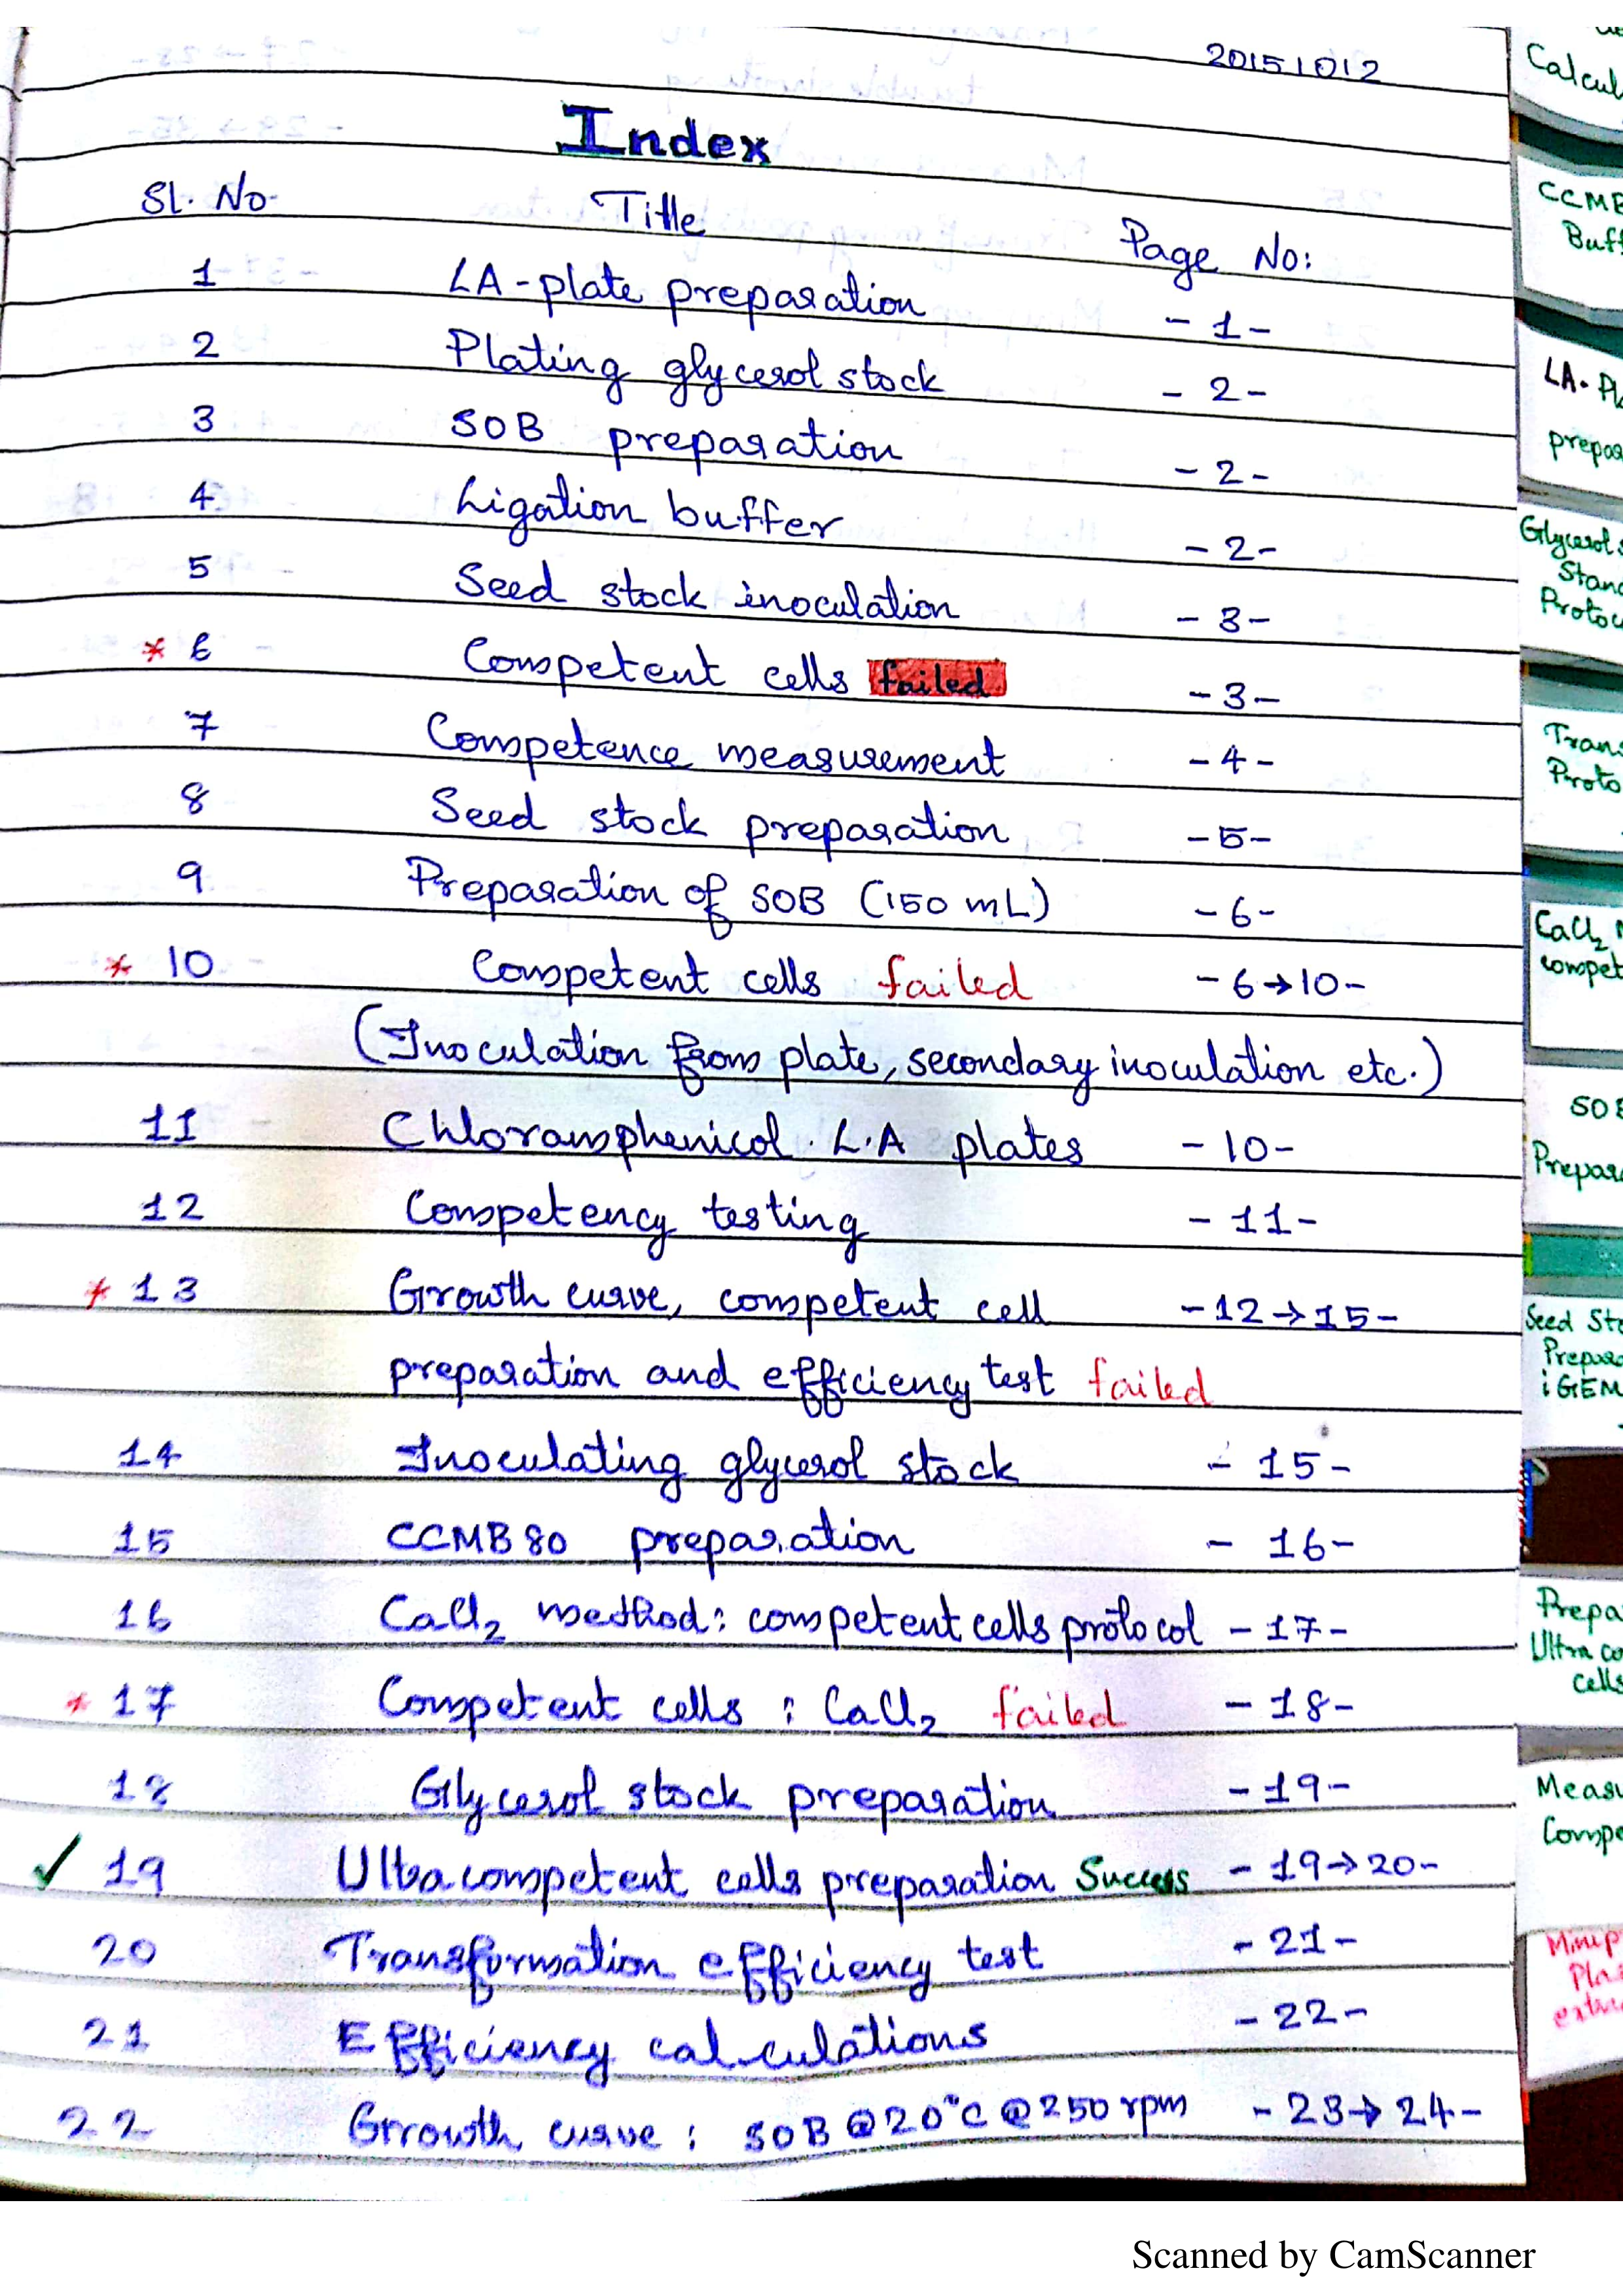 20151012
Index
Sl. No. Title Page No:
1 LA-plate preparation -1-
2 Plating glycerol stock -2-
3 SOB preparation -2-
4 Ligation buffer -2-
5 Seed stock inoculation -3-
* 6 Competent cells failed -3-
7 Competence measurement -4-
8 Seed stock preparation -5-
9 Preparation of SOB (150 mL) -6-
* 10 Competent cells failed -6→10-
(Inoculation from plate, secondary inoculation etc.)
11 Chloramphenicol L.A plates -10-
12 Competency testing -11-
* 13 Growth curve, competent cell -12→15-
preparation and efficiency test failed
14 Inoculating glycerol stock -15-
15 CCMB80 preparation -16-
16 CaCl₂ method: competent cells protocol -17-
* 17 Competent cells : CaCl₂ failed -18-
18 Glycerol stock preparation -19-
✓ 19 Ultracompetent cells preparation Success -19→20-
20 Transformation efficiency test -21-
21 Efficiency calculations -22-
22 Growth curve : SOB @20°C @250 rpm -23→24-
Calcul
CCMB
Buff
LA-Pl
prepar
Glycerol s
Stand
Protoc
Trans
Proto
CaCl₂
compet
SOB
Prepar
Seed Sto
Prepar
iGEM
Prepa
Ultra co
cells
Measu
Compe
Minip
Pla
extra
Scanned by CamScanner